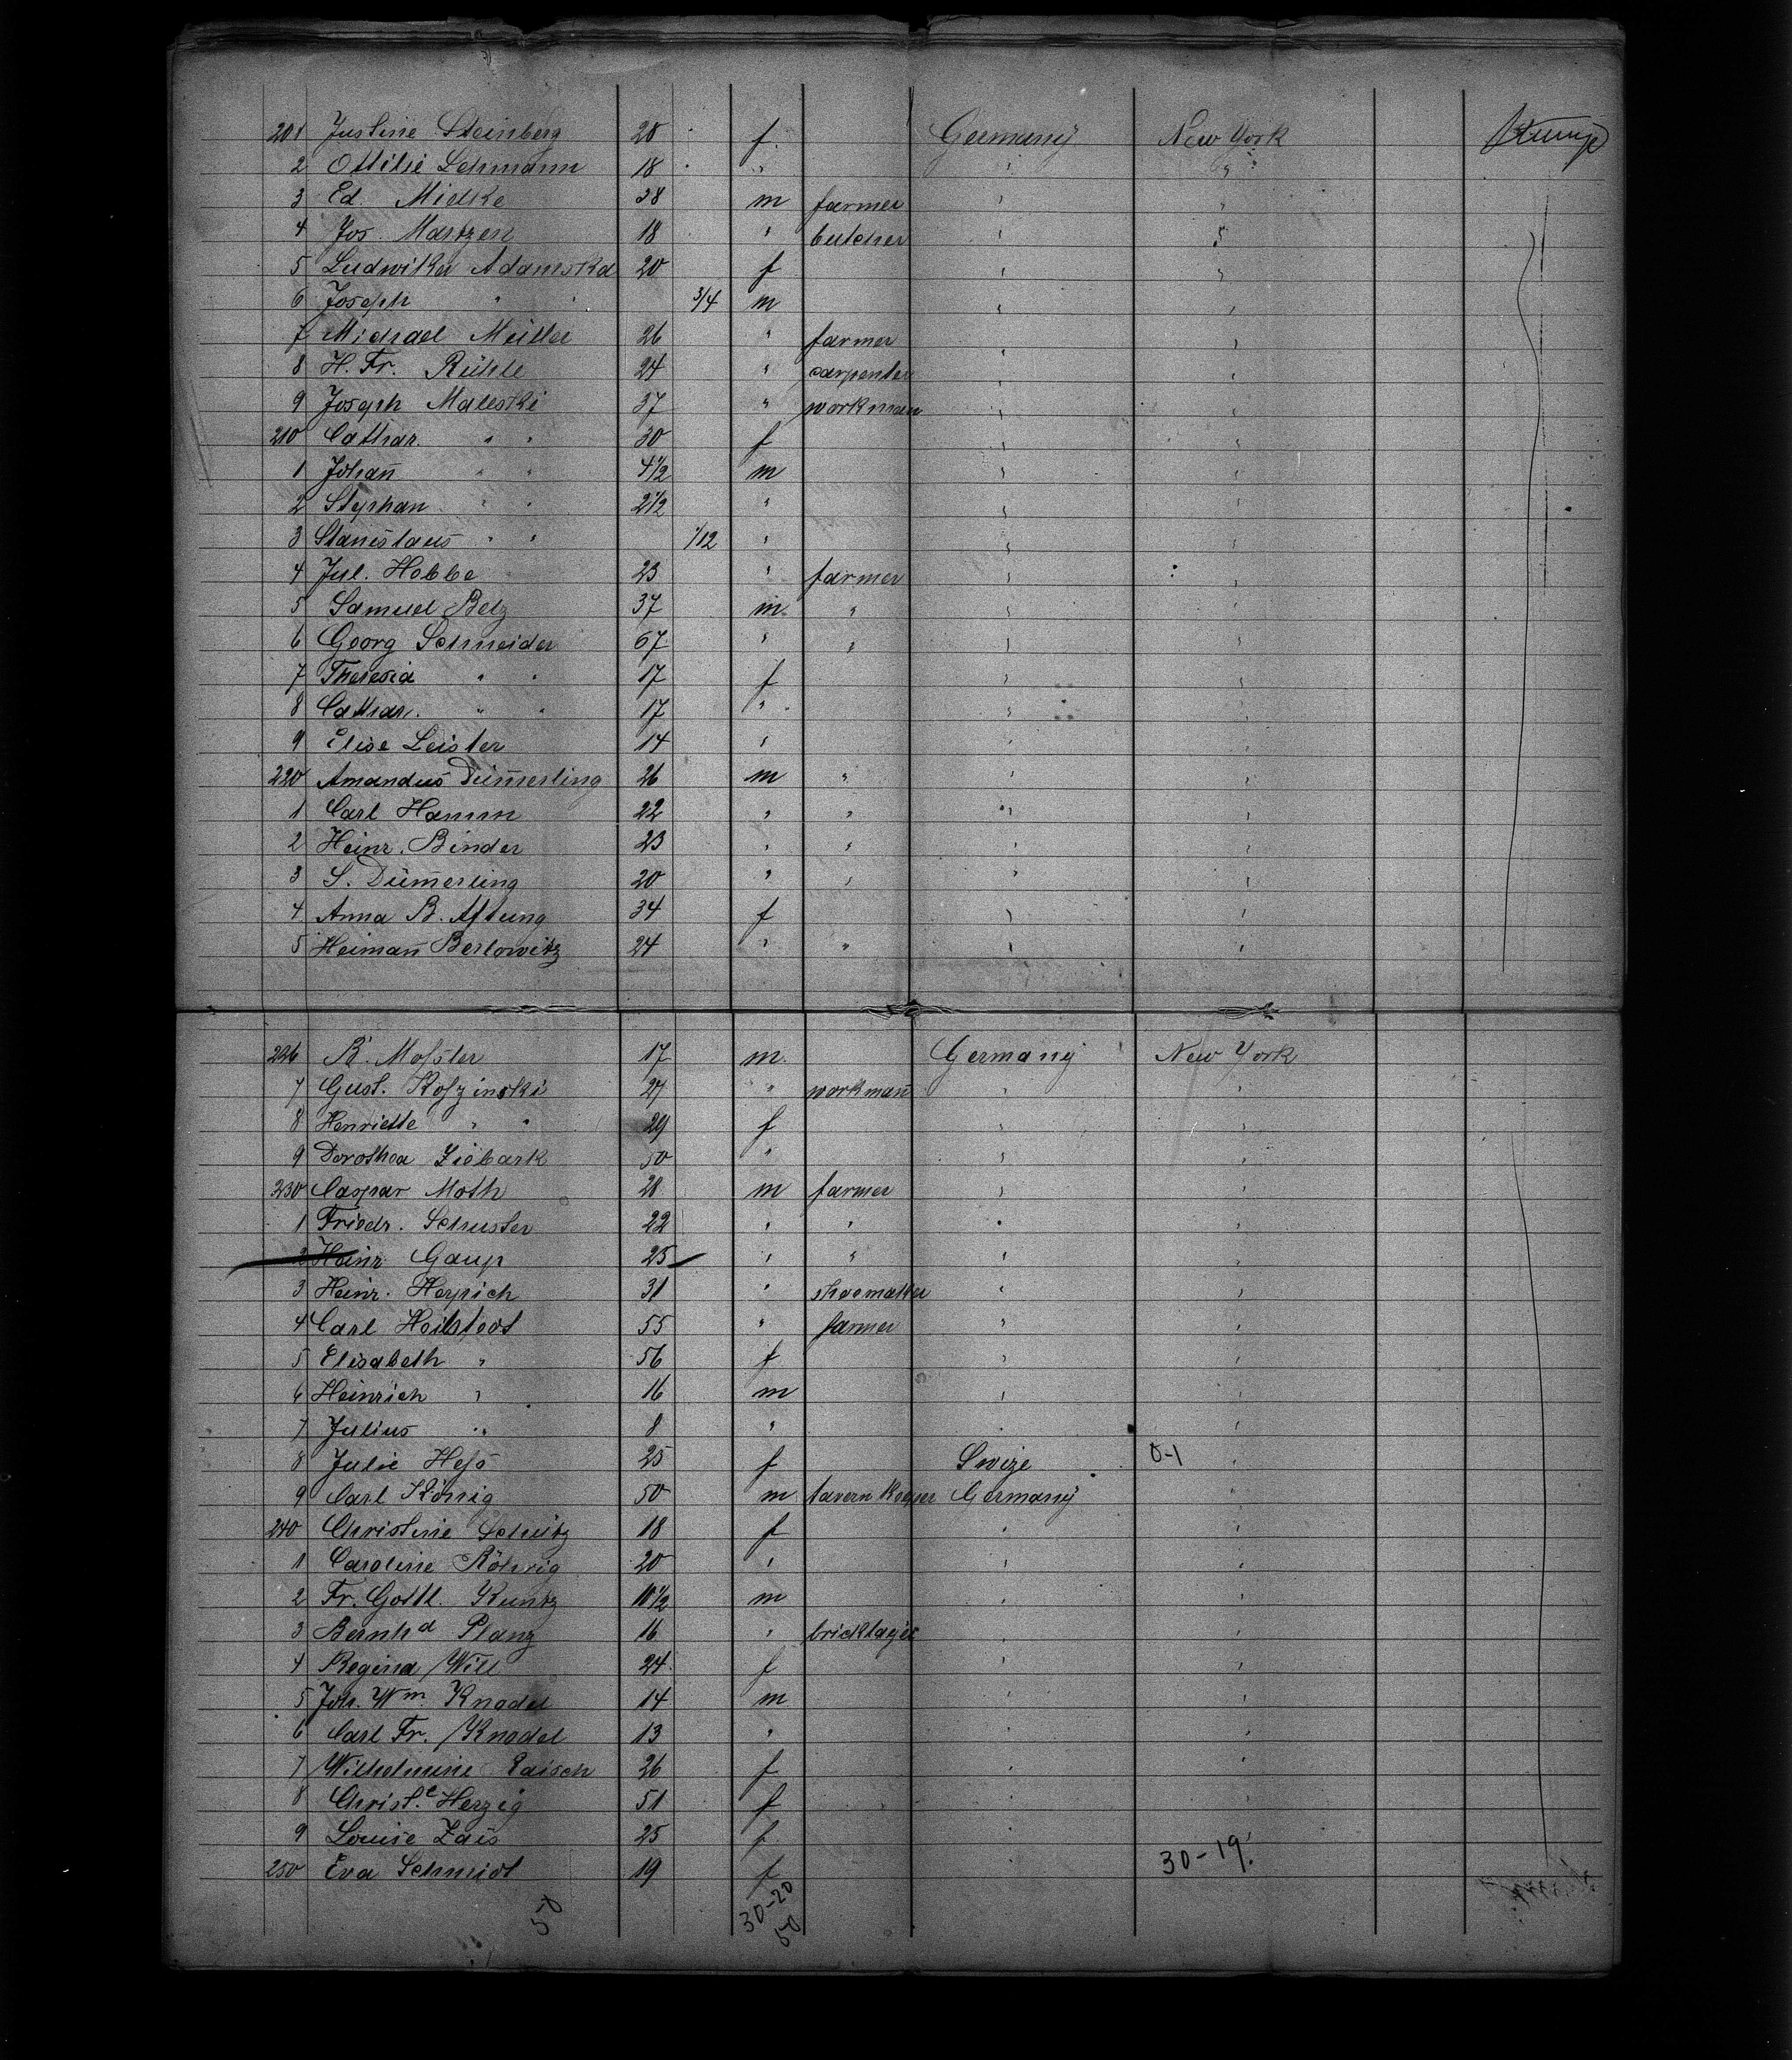 201 Justine Steinberg 20 f. Germany New York
2 Ottilie Lehmann 18 " " "
3 Ed. Mielke 28 m farmer " "
4 Jos. Martzen 18 " butcher " "
5 Ludwika Adamska 20 f " "
6 Joseph " " 3/4 m " "
7 Michael Müller 26 " farmer " "
8 H. Fr. Rühle 24 " carpenter " "
9 Joseph Maleski 37 " workman " "
210 Cathar. " " 30 f " "
1 Johan̄ " " 4½ m " "
2 Stephan " " 2½ " " "
3 Stanislaus " " 1/12 " " "
4 Jul. Hobbe 23 " farmer " "
5 Samuel Belz 37 m. " " "
6 Georg Schneider 67 " " " "
7 Theresia " " 17 f " "
8 Cathar. " " 17 " " "
9 Elise Leister 14 " " "
220 Amandus Düm̄erling 26 m " " "
1 Carl Hamm 22 " " " "
2 Heinr. Binder 23 " " " "
3 S. Düm̄erling 20 " " " "
4 Anna B. 34 f " "
5 Heiman̄ Berlowitz 24 " " " "
226 B. Moſster 17 m. Germany New York
7 Gust. Koſzinski 27 " workman̄ " "
8 Henriette " " 29 f " "
9 Dorothea Ziebark 50 " " "
230 Caspar Moth 28 m farmer " "
1 Friedr. Schuster 22 " " " "
2 Heinr Gaup 25 " " " "
3 Heinr. Herpich 31 " shoemaker " "
4 Carl Heilstedt 55 " farmer " "
5 Elisabeth " 56 f " "
6 Heinrich " 16 m " "
7 Julius " 8 " "
8 Julie Heſs 25 f Swize 0-1 "
9 Carl König 50 m tavern keeper Germany "
240 Christine Schütz 18 f " "
1 Caroline Röhrig 20 " " "
2 Fr. Gottl. Kuntz 10½ m " "
3 Bernhd Planz 16 " bricklayer " "
4 Regina Will 24 f " "
5 Joh. Wm. Knodel 14 m " "
6 Carl Fr. Knodel 13 " " "
7 Wilhelmine Paisch 26 f " "
8 Christ.e Herzig 51 f " "
9 Louise Zais 25 f " "
250 Eva Schmidt 19 f " 30-19.
50 30-20
50